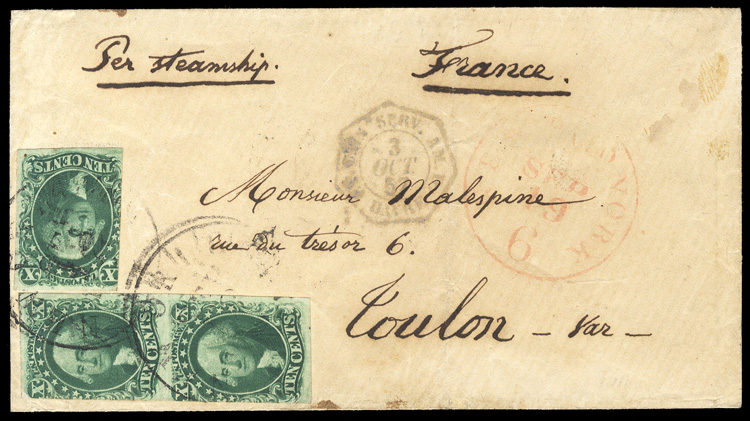 Per steamship. France.
SERV. AM.
3
OCT
YORK
SEP
19
6
Monsieur Malespine
rue du trésor 6.
Toulon _ Var _
TEN CENTS.
X X
X TEN CENTS. X
X TEN CENTS. X